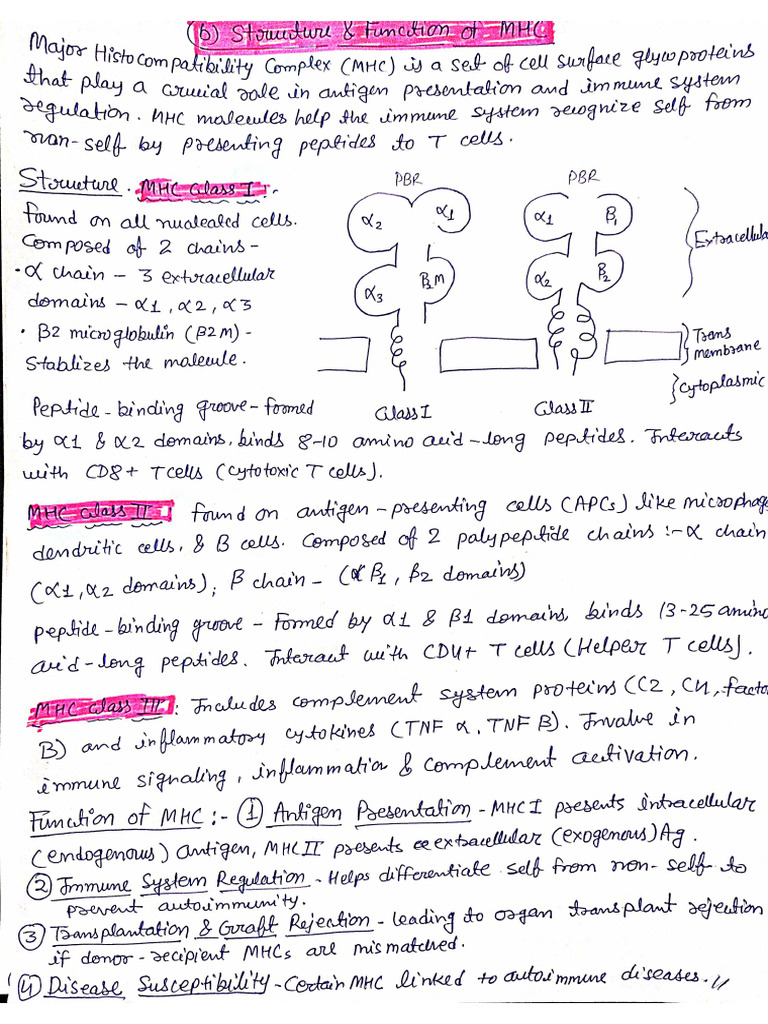 (6) Structure & Function of MHC
Major Histocompatibility Complex (MHC) is a set of cell surface glycoproteins
that play a crucial role in antigen presentation and immune system
regulation. MHC molecules help the immune system recognize self from
non-self by presenting peptides to T cells.
Structure. MHC Class I :-
found on all nucleated cells.
Composed of 2 chains -
• α chain - 3 extracellular
domains - α1, α2, α3
• β2 microglobulin (β2M) -
Stablizes the molecule.
PBR
PBR
α2
α1
α1
β1
α3
β2M
α2
β2
Extracellula
Trans
membrane
Cytoplasmic
Class I
Class II
Peptide-binding groove - formed
by α1 & α2 domains, binds 8-10 amino acid-long peptides. Interacts
with CD8+ T cells (Cytotoxic T cells).
MHC Class II : found on antigen-presenting cells (APCs) like microphage
dendritic cells, & B cells. Composed of 2 polypeptide chains :- α chain
(α1, α2 domains); β chain - (β1, β2 domains)
peptide-binding groove - Formed by α1 & β1 domains, binds 13-25 amino
acid-long peptides. Interact with CD4+ T cells (Helper T cells).
MHC Class III : Includes complement system proteins (C2, C4, facto
B) and inflammatory cytokines (TNF α, TNF β). Involve in
immune signaling, inflammation & complement activation.
Function of MHC :- ① Antigen Presentation - MHC I presents intracellular
(endogenous) antigen, MHC II presents extracellular (exogenous) Ag.
② Immune System Regulation - Helps differentiate self from non-self to
prevent autoimmunity.
③ Transplantation & Graft Rejection - leading to organ transplant rejection
if donor-recipient MHCs are mismatched.
④ Disease Susceptibility - Certain MHC linked to autoimmune diseases. //